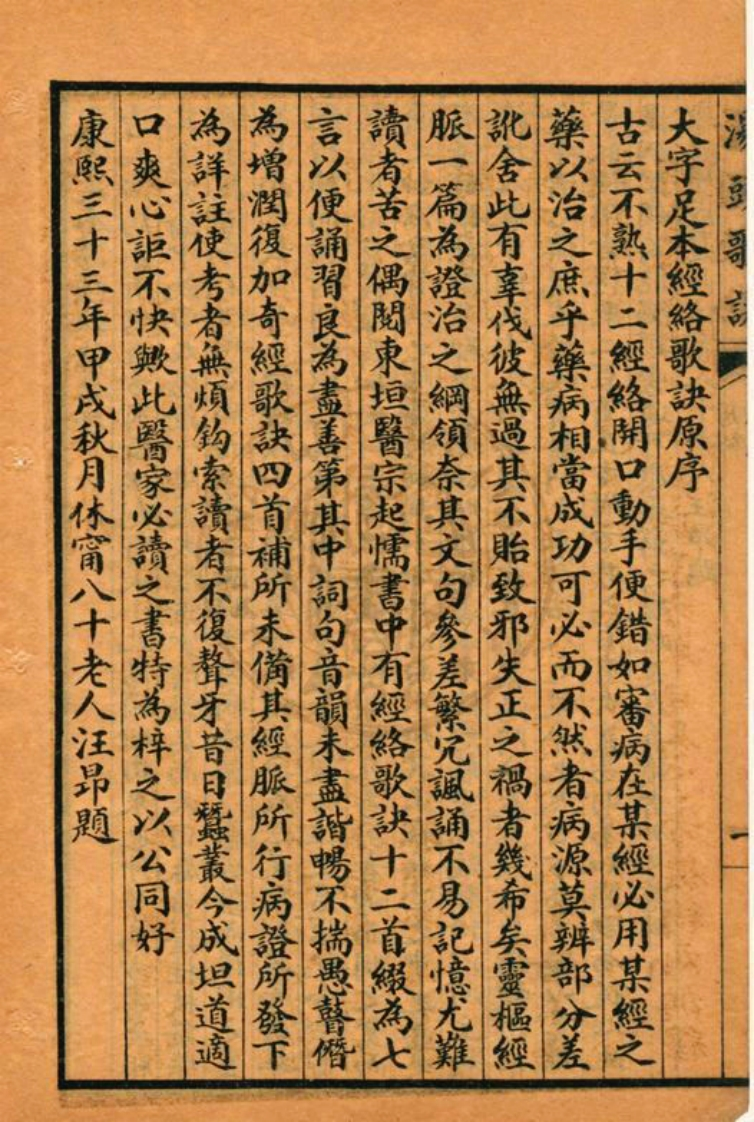 湯頭歌訣
一
大字足本經絡歌訣原序
古云不熟十二經絡開口動手便錯如審病在某經必用某經之
藥以治之庶乎藥病相當成功可必而不然者病源莫辨部分差
訛舍此有辜伐彼無過其不貽致邪失正之禍者幾希矣靈樞經
脈一篇為證治之綱領奈其文句參差繁冗諷誦不易記憶尤難
讀者苦之偶閱東垣醫宗起懦書中有經絡歌訣十二首綴為七
言以便誦習良為盡善第其中詞句音韻未盡諧暢不揣愚瞽僭
為增潤復加奇經歌訣四首補所未備其經脈所行病證所發下
為詳註使考者無煩鈎索讀者不復聱牙昔日蠶叢今成坦道適
口爽心詎不快歟此醫家必讀之書特為梓之以公同好
康熙三十三年甲戌秋月休甯八十老人汪昂題